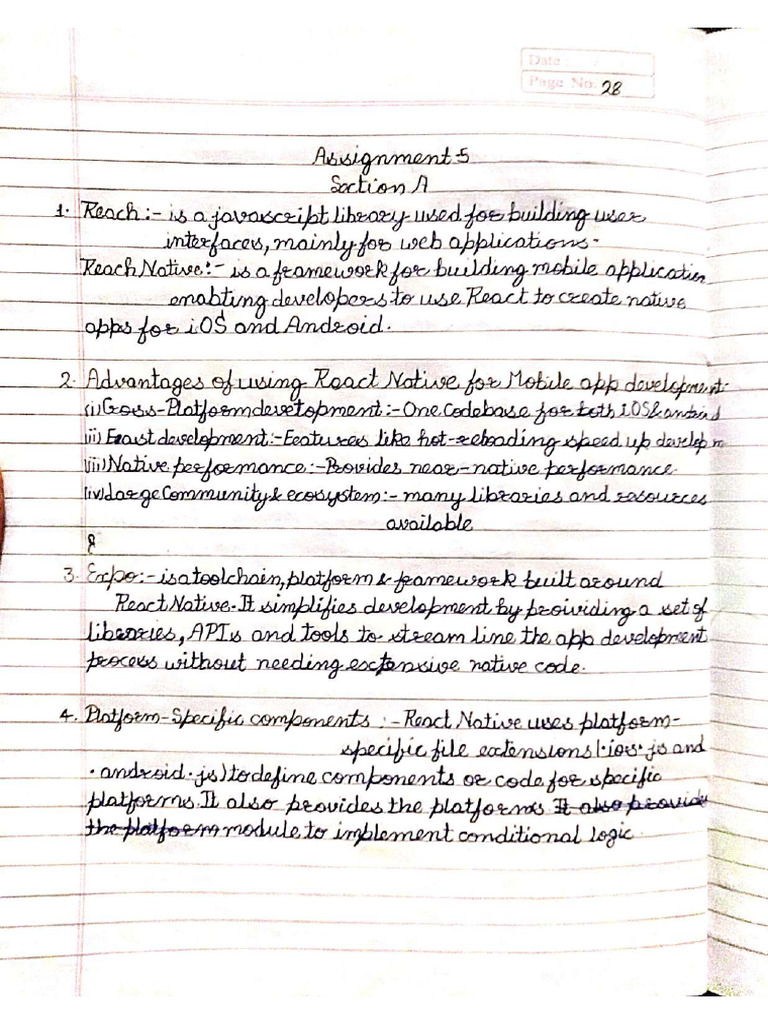 Date : / /
Page No. 28
Assignment 5
Section A
1. Reach :- is a javascript library used for building user
interfaces, mainly for web applications.
Reach Native:- is a framework for building mobile application
enabting developers to use React to create native
apps for iOS and Android.
2. Advantages of using React Native for Mobile app development:
(i) Cross-Platform devetopment :- One Codebase for both iOS &
(ii) Fast development:- Features like hot-reloading speed up develop
(iii) Native performance :- Provides near-native performance.
(iv) Large Community & ecosystem:- many libraries and resources
available
&
3. Expo:- is a toolchain, platform & framework built around
React Native. It simplifies development by proividing a set of
libraries, APIs and tools to stream line the app development
process without needing extensive native code.
4. Platform-Specific components :- React Native uses platform-
specific file extensions (.ios.js and
.android.js) to define components or code for specific
platforms. It also provides the platforms It also provide
the platform module to implement conditional logic.